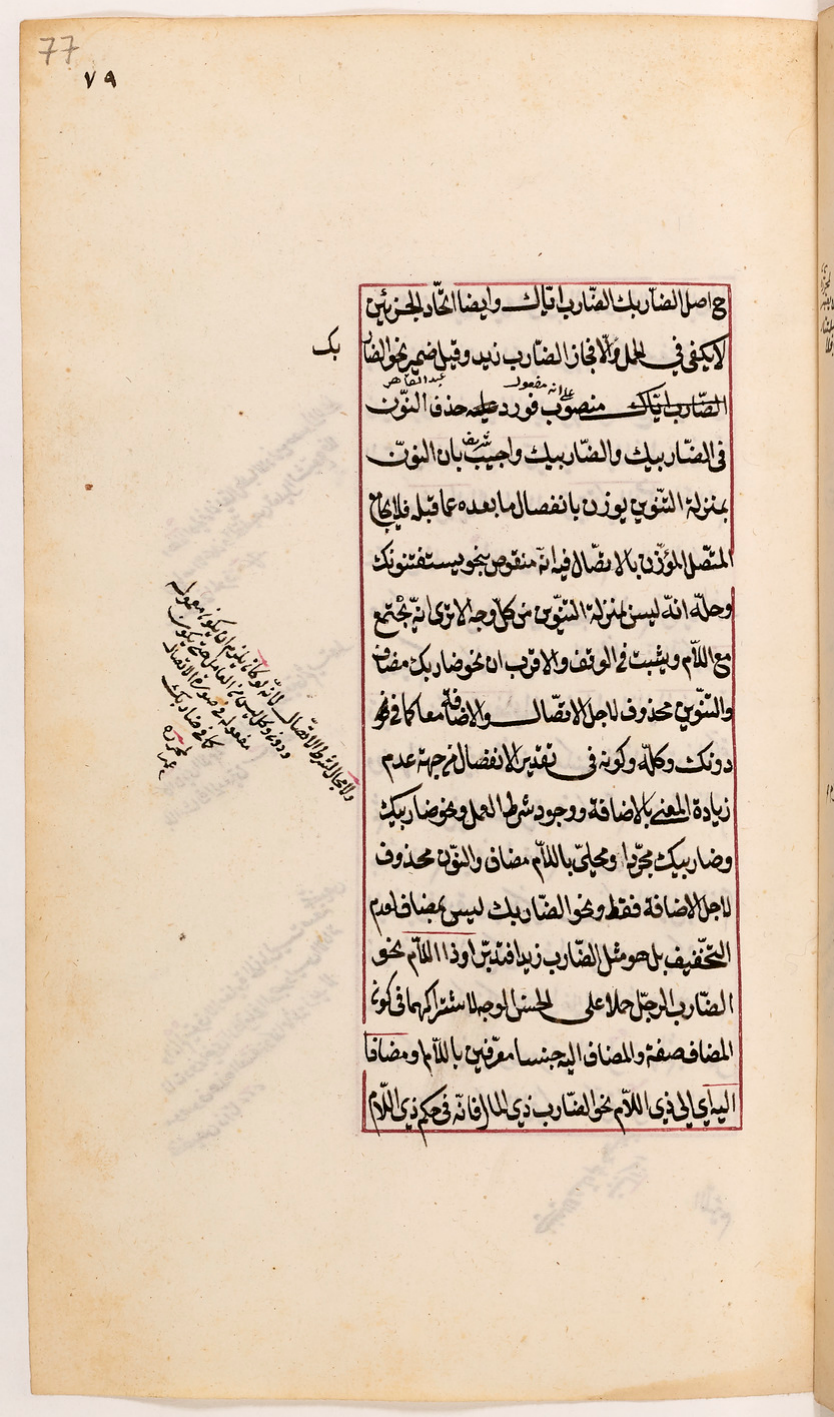 77
٧٩
ح اصل الضاربك الضّارب ايّاك وايضا اتّحاد الجزئين
لا يكفى فى الحمل والّا فجاز الضّارب زيد وقيل ضمير نحو الضار
بك
على انه مفعول عبد القاهر
الضّارب ايّاك منصوب فورد عليه حذف النّون
شريف
فى الضّاربيك والضّاربيك واجيب بان النّون
بمنزلة التّنوين يوزن بانفصال ما بعده عما قبله فلا يجامع
المتّصل المؤذن بالاتّصال فيه انّه منقوص بنحو يستفتنونك
وحلّه انّه ليس بمنزلة التّنوين من كلّ وجه الا ترى انّه يجتمع
مع اللّام ويثبت فى الوقف والاقرب ان نحو ضاربك مضاف
والتّنوين محذوف لاجل الاتّصال والاضافة معا كما فى نحو
دونك وكلّه وكونه فى تقدير الانفصال من جهة عدم
زيادة المعنى بالاضافة ووجود شرط العمل ونحو ضاربيك
وضاربيك مجرّدا ومحلىّ باللّام مضاف والنّون محذوف
لاجل الاضافة فقط ونحو الضّاربك ليس بمضاف لعدم
التّخفيف بل هو مثل الضّارب زيدا فتدبّر اوذا اللّام نحو
الضّارب الرجل حملا على الحسن الوجه لاشتراكهما فى كون
المضاف صفة والمضاف اليه جنسا معرّفين باللّام ومضافا
اليه اي الى ذى اللّام نحو الضّارب ذي المال فانّه فى حكم ذى اللّام
ولا مجال لشرط الاتّصال لانّه لو كان يلزم ان يكون معموله
ودونك وكل ليس من العامل حتى يكون
مفعوله فى صورة الاتصال
كما فى ضاربك
لمحرّره